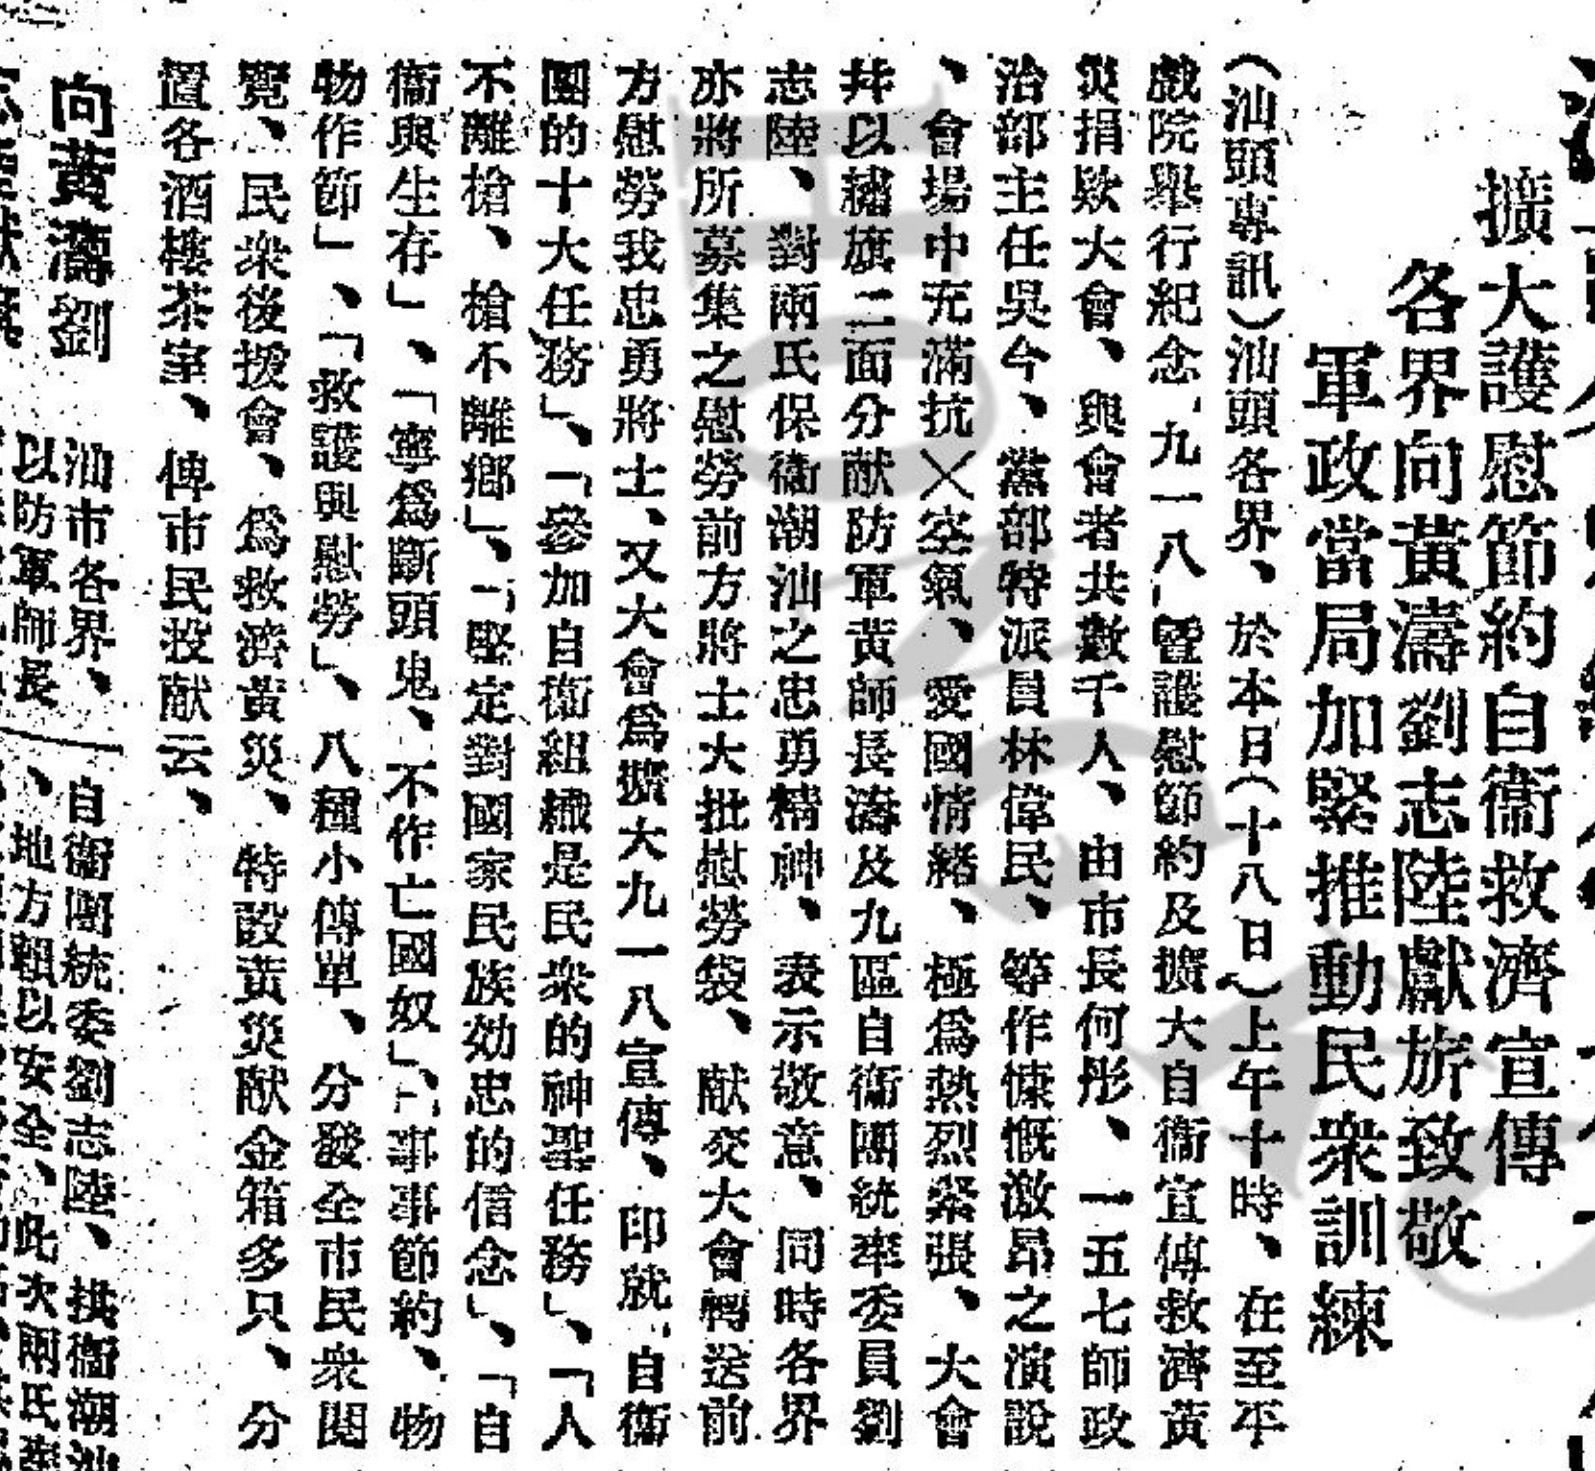 擴大護慰節約自衞救濟宣傳
各界向黃濤劉志陸獻旂致敬
軍政當局加緊推動民衆訓練
（汕頭專訊）汕頭各界、於本日（十八日）上午十時、在至平
戲院舉行紀念「九一八」暨護慰節約及擴大自衞宣傳救濟黃
災捐欵大會、與會者共數千人、由市長何彤、一五七師政
治部主任吳今、黨部特派員林偉民、等作慷慨激昂之演說
、會塲中充滿抗╳空氣、愛國情緒、極爲熱烈緊張、大會
幷以繡旗二面分献防軍黃師長濤及九區自衞團統率委員劉
志陸、對兩氏保衞潮汕之忠勇精神、表示敬意、同時各界
亦將所募集之慰勞前方將士大批慰勞袋、献交大會轉送前
方慰勞我忠勇將士、又大會爲擴大九一八宣傳、印就「自衞
團的十大任務」、「參加自衞組織是民衆的神聖任務」、「人
不離槍、槍不離鄉」、「堅定對國家民族効忠的信念」、「自
衞與生存」、「寧爲斷頭鬼、不作亡國奴」、「事事節約、物
物作節」、「救護與慰勞」、八種小傳單、分發全市民衆閱
覽、民衆後援會、爲救濟黃災、特設黃災献金箱多只、分
置各酒樓茶室、俾市民投献云、
向黃濤劉
汕市各界、
以防軍師長
自衞團統委劉志陸、拱衞潮汕
、地方賴以安全、此次兩氏